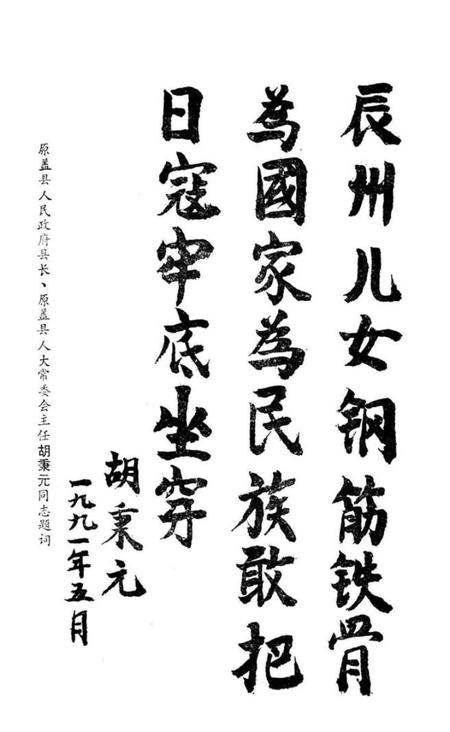 辰州儿女钢筋铁骨
為國家為民族敢把
日寇牢底坐穿
胡秉元
一九九一年五月
原盖县人民政府县长、原盖县人大常委会主任胡秉元同志题词